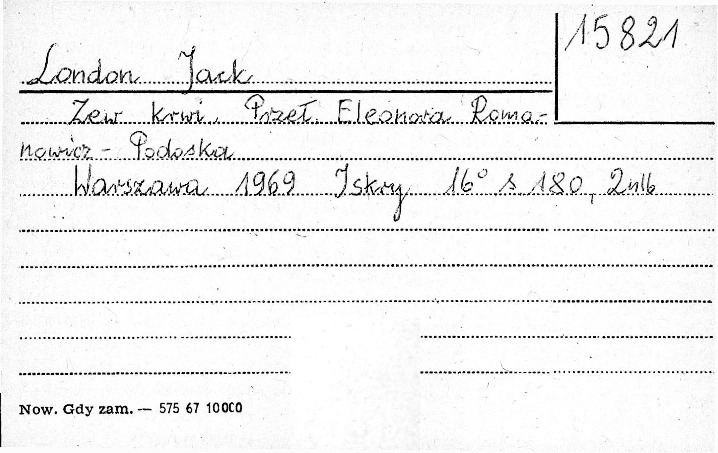 15821
London Jack
Zew krwi. Przeł. Eleonora Roma-
nowicz - Podoska
Warszawa 1969 Iskry 16° s 180, 2nlb
Now. Gdy zam. — 575 67 10000